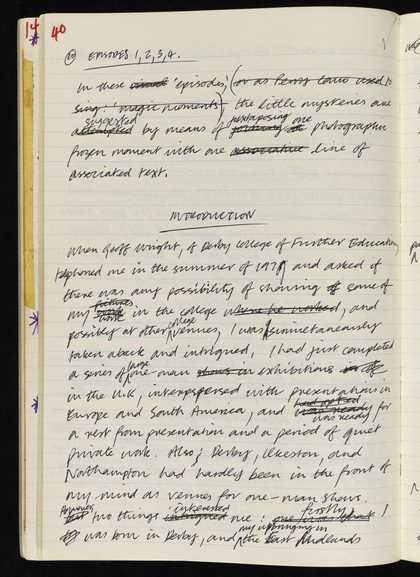 14 40
(10) EPISODES 1, 2, 3, 4.
In these visual 'episodes', (or as Perry Como used to
sing: 'magic moments') the little mysteries are
suggested juxtaposing
attempted by means of one photographic
frozen moment with one associative line of
associated text.
INTRODUCTION
When Geoff Wright, of Derby College of Further Education,
telephoned me in the summer of 1977, and asked if
there was any possibility of showing some of
my work in the college where he worked, and
college
possibly at other venues, I was simultaneously
taken aback and intrigued. I had just completed
large
a series of one-man shows in exhibitions
in the U.K., interspersed with presentations in
Europe and South America, and
was ready for
a rest from presentation and a period of quiet
private work. Also, Derby, Ilkeston, and
Northampton had hardly been in the front of
my mind as venues for one-man shows.
However interested firstly
But two things intrigued me: I
was born in Derby, and my upbringing in
the East Midlands